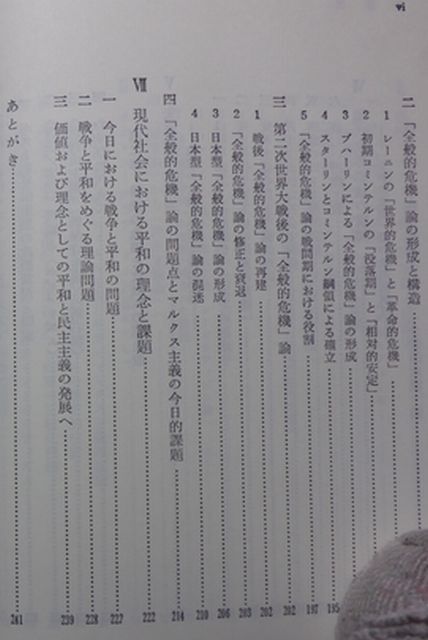 vi
二 「全般的危機」論の形成と構造
1 レーニンの「世界的危機」と「革命的危機」
2 初期コミンテルンの「没落期」と「相対的安定」
3 ブハーリンによる「全般的危機」論の形成
4 スターリンとコミンテルン綱領による確立 195
5 「全般的危機」論の戦間期における役割 197
三 第二次世界大戦後の「全般的危機」論 202
1 戦後「全般的危機」論の再建 202
2 「全般的危機」論の修正と衰退 203
3 日本型「全般的危機」論の形成 206
4 日本型「全般的危機」論の混迷 210
四 「全般的危機」論の問題点とマルクス主義の今日的課題 214
Ⅶ 現代社会における平和の理念と課題 222
一 今日における戦争と平和の問題 222
二 戦争と平和をめぐる理論問題 228
三 価値および理念としての平和と民主主義の発展へ 239
あとがき 241